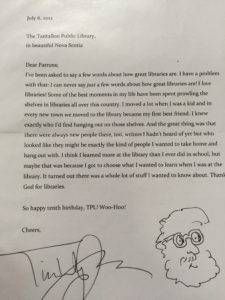 July 6, 2012
The Tantallon Public Library,
in beautiful Nova Scotia
Dear Patrons:
I've been asked to say a few words about how great libraries are. I have a problem
with that: I can never say just a few words about how great libraries are! I love
libraries! Some of the best moments in my life have been spent prowling the
shelves in libraries all over this country. I moved a lot when I was a kid and in
every new town we moved to the library became my first best friend. I knew
exactly who I'd find hanging out on those shelves. And the great thing was that
there were always new people there, too, writers I hadn't heard of yet but who
looked like they might be exactly the kind of people I wanted to take home and
hang out with. I think I learned more at the library than I ever did in school, but
maybe that was because I got to choose what I wanted to learn when I was at the
library. It turned out there was a whole lot of stuff I wanted to know about. Thank
God for libraries.
So happy tenth birthday, TPL! Woo-Hoo!
Cheers,